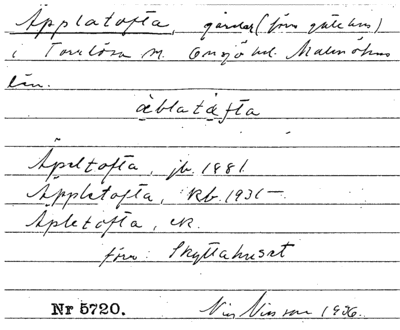 Äpplatofta, gårdar (förr gatehus)
i Torrlösa sn. Onsjö hd. Malmöhus
län.
äblatåfta
Äpeltofta, jb. 1881
Äppletofta, kb. 1931–
Äpletofta, ek.
förr Skyttahuset
Nr 5720.
Nils Nilsson 1936.